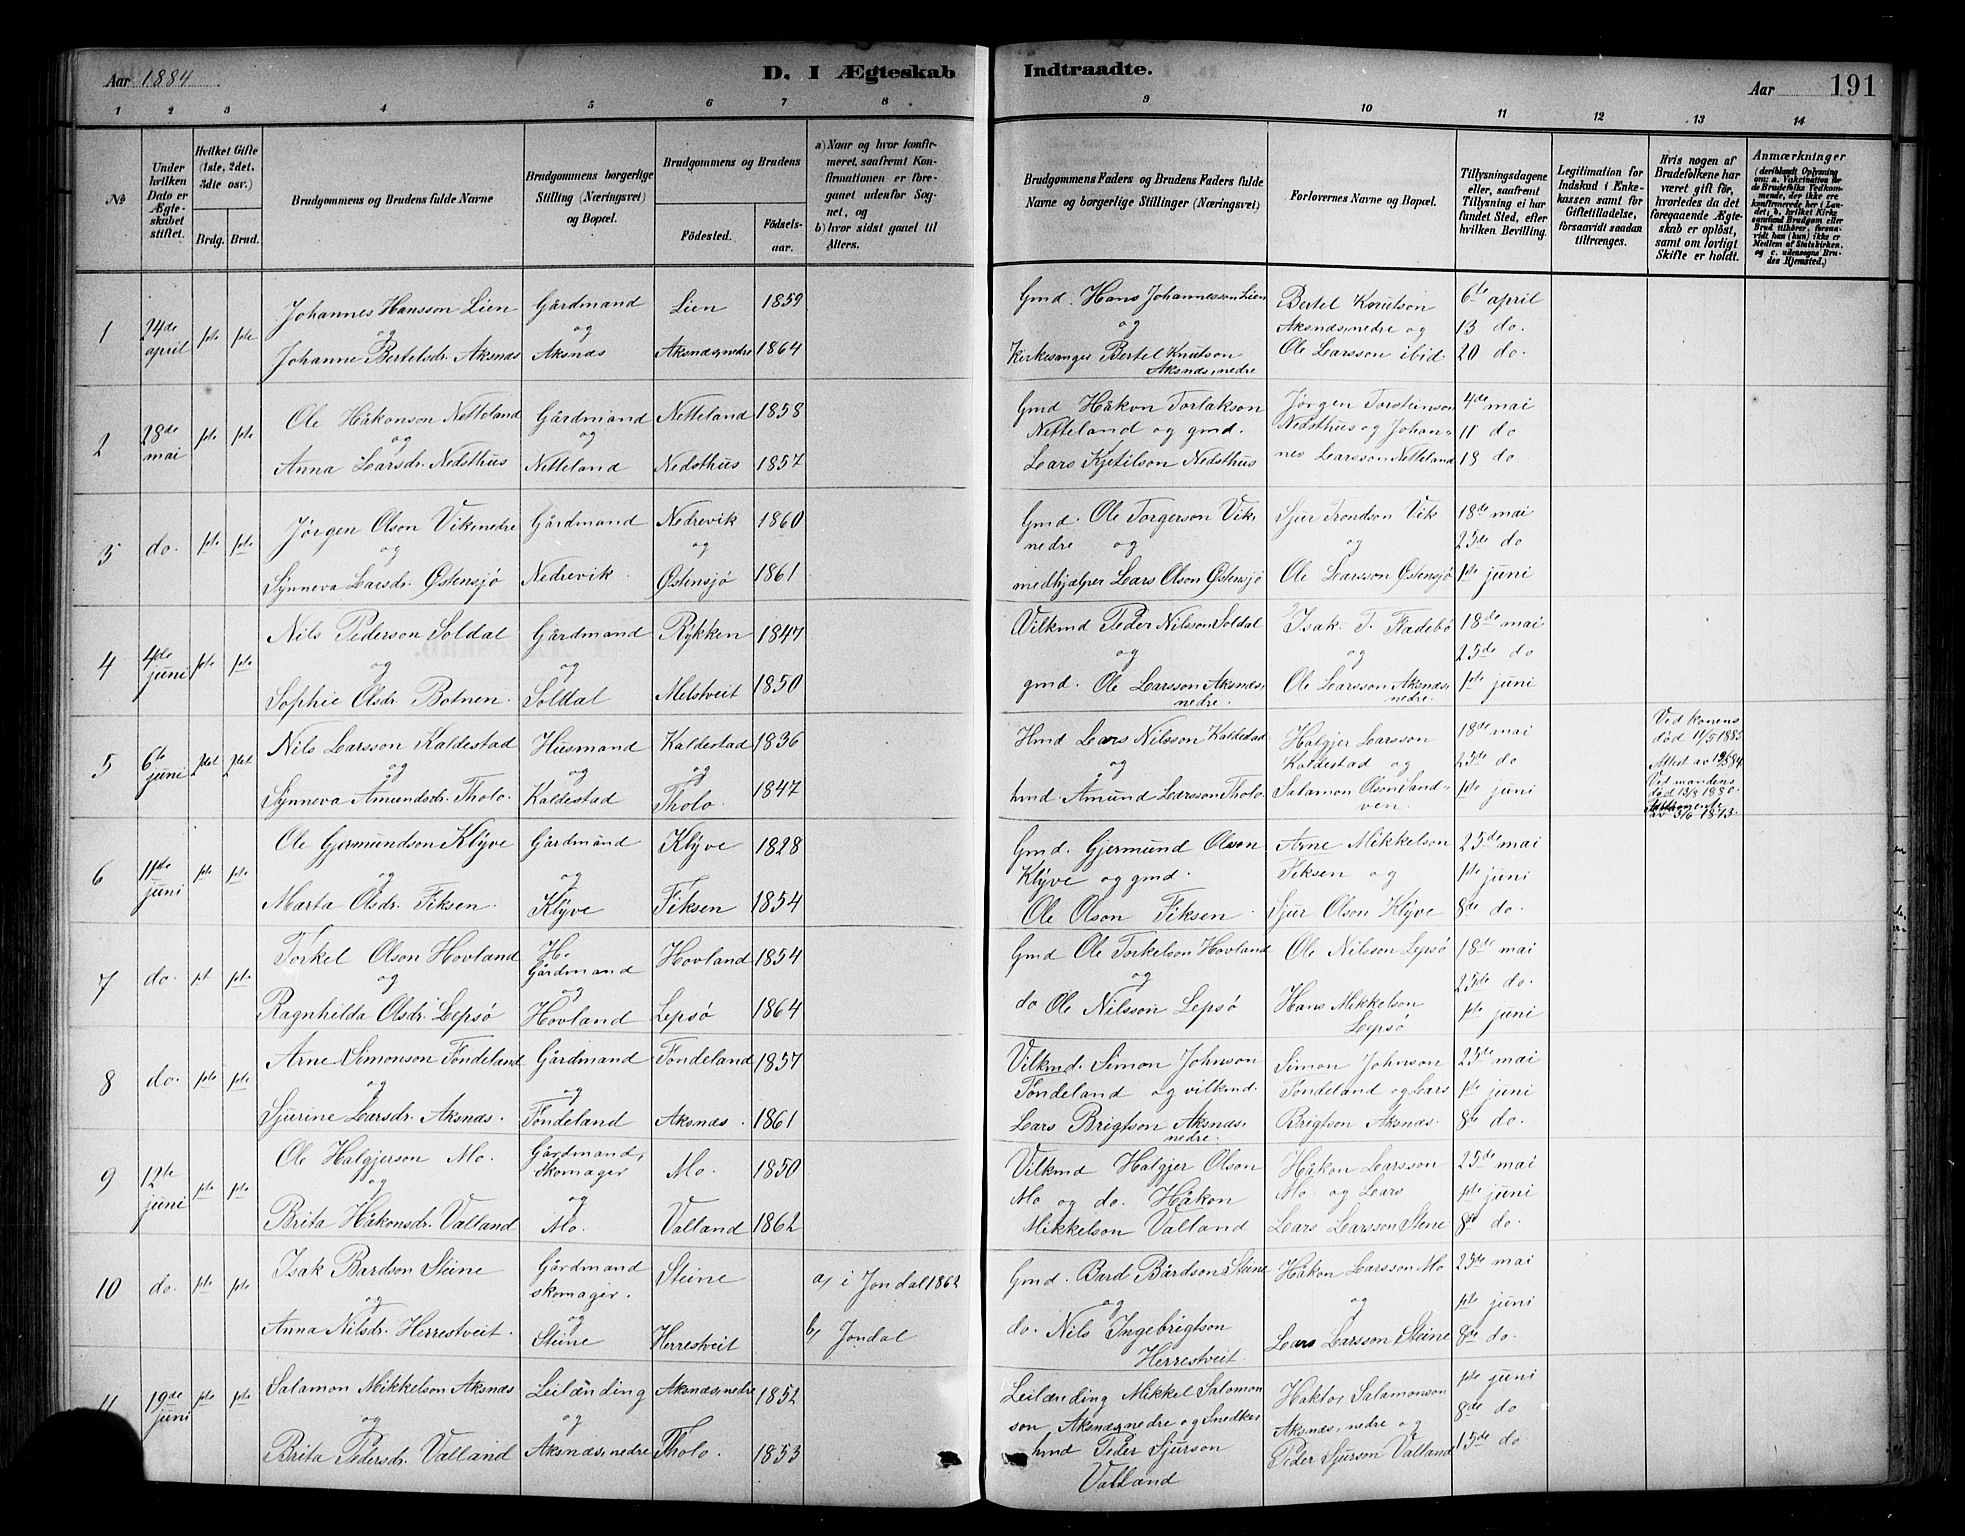 Aar 1884
D. I Ægteskab Indtraadte.
Aar 191
1 2 3 4 5 6 7 8 9 10 11 12 13 14
№
Under hvilken Dato er Ægteskabet stiftet.
Hvilket Gifte (1ste, 2det, 3die osv.)
Brdg. Brud.
Brudgommens og Brudens fulde Navne
Brudgommens borgerlige Stilling (Næringsvei) og Bopæl.
Brudgommens og Brudens
Fødested.
Fødselsaar.
a) Naar og hvor konfirmeret, saafremt Konfirmationen er foregaaet udenfor Sognet, og
b) hvor sidst gaaet til Alters.
Brudgommens Faders og Brudens Faders fulde Navne og borgerlige Stillinger (Næringsvei)
Forlovernes Navne og Bopæl.
Tillysningsdagene eller, saafremt Tillysning ei har fundet Sted, efter hvilken Bevilling.
Legitimation for Indskud i Enkekassen samt for Giftetilladelse, forsaavidt saadan tiltrænges.
Hvis nogen af Brudefolkene har været gift før, hvorledes da det foregaaende Ægteskab er opløst, samt om lovligt Skifte er holdt.
Anmærkninger (deriblandt Oplysning om: a. Vakcination for de Brudefolks Vedkommende, der ikke ere konfirmerede her i Landet; b. hvilket Kirkesamfund Brudgom eller Brud tilhører, forsaavidt han (hun) ikke er Medlem af Statskirken, og c. udensogns Brudes Hjemsted.)
1 24de april 1ste 1ste
Johannes Hansson Lien Gårdmand Lien 1859
og og
Johanne Bertelsdr. Aksnæs Aksnæs Aksnæs, nedre 1864
Gmd. Hans Johannesson Lien Bertel Knutson 6te april
og Aksnæs, nedre og 13 do.
Kirkesanger Bertel Knutson Ole Larsson ibid. 20 do.
Aksnæs, nedre
2 28de mai 1ste 1ste
Ole Håkonson Netteland Gårdmand Netteland 1858
og og
Anna Larsdr. Nedsthus Netteland Nedsthus 1857
Gmd Håkon Torlakson Jørgen Torsteinson 4de mai
Netteland og gmd. Nedsthus og Johan= 11 do
Lars Kjetilson Nedsthus nes Larsson Netteland 18 do
3 do. 1ste 1ste
Jørgen Olson Vik, nedre Gårdmand Nedrevik 1860
og og
Synneva Larsdr. Østensjø Nedrevik. Østensjø 1861
Gmd. Ole Torgerson Vik, Sjur Trondson Vik 18de mai
nedre og og 25de do
medhjælper Lars Olson Østensjø Ole Larsson Østensjø 1ste juni
4 4de juni 1ste 1ste
Nils Pederson Soldal Gårdmand Rykken 1847
og og
Sophie Olsdr. Botnen. Soldal Melstveit 1850
Vilkmd Peder Nilsson Soldal Isak T. Fladebø 18de mai
og og 25de do
gmd. Ole Larsson Aksnæs, Ole Larsson Aksnæs, 1ste juni
nedre. nedre.
5 6te juni 2det 2det
Nils Larsson Kaldestad Husmand Kaldestad 1836
og og og
Synneva Amundsdr. Tholo. Kaldestad Tholo. 1847
Hmd Lars Nilsson Kaldestad Halgjer Larsson 18de mai
og Kaldestad og 25de do
hmd. Amund Larsson Tholo. Salamon Olson Sand= 1ste juni
ven.
Ved konens
død 11/5 1883
Attest av
Ved mandens
død 13/8 1880.
6 11te juni 1ste 1ste
Ole Gjermundson Klyve Gårdmand Klyve 1828
og og
Marta Olsdr. Fiksen. Klyve Fiksen 1854
Gmd. Gjermund Olson Arne Mikkelson 25de mai
Klyve og gmd. Fiksen og 1ste juni
Ole Olson Fiksen. Sjur Olson Klyve 8de do.
7 do. 1st 1ste
Torkel Olson Hovland H. Gårdmand Hovland 1854
og og
Ragnhilda Olsdr. Lepsø Hovland Lepsø 1864
Gmd Ole Torkelson Hovland Ole Nilsson Lepsø 18de mai
og 25de do.
do Ole Nilsson Lepsø Hans Mikkelson 1ste juni
Lepsø
8 do. 1ste 1ste
Arne Simonson Tondeland Gårdmand Tondeland 1857
og og
Sjurine Larsdr. Aksnæs. Tondeland Aksnæs. 1861
Vilkmd. Simon Johnson Simon Johnson 25de mai
Tondeland og vilkmd. Tondeland og Lars 1ste juni
Lars Brigtson Aksnæs, Brigtson Aksnæs. 8de do.
nedre.
9 12te juni 1ste 1ste
Ole Halgjerson Mo. Gårdmand, skomager Mo. 1850
og og
Brita Håkonsdr. Valland Mo. Valland 1862
Vilkmd Halgjer Olson Håkon Larsson 25de mai
Mo og do. Håkon Mo. og Lars 1ste juni
Mikkelson Valland Lars Larsson Steine 8de do.
10 do. 1ste 1ste
Isak Bardson Steine Gårdmand skomager. Steine a) i Jondal 1862
og og
Anna Nilsdr. Herrestveit. Steine Herrestveit b) Jondal
Gmd. Bard Bårdson Steine Håkon Larsson Mo 25de mai
og og 1ste juni
do. Nils Ingebrigtson Lars Larsson Steine 8de do.
Herrestveit.
11 19de juni 1ste 1ste
Salamon Mikkelson Aksnæs Leilænding Aksnæs, nedre 1852
og og
Brita Pedersdr. Valland Aksnæs, nedre Tholo. 1853
Leilænding Mikkel Salomon Haktor Salamonson 1ste juni
son, Aksnæs nedre og Snedker Aksnæs, nedre og 8de do
hmd Peder Sjurson Peder Sjurson Valland 15de do.
Valland